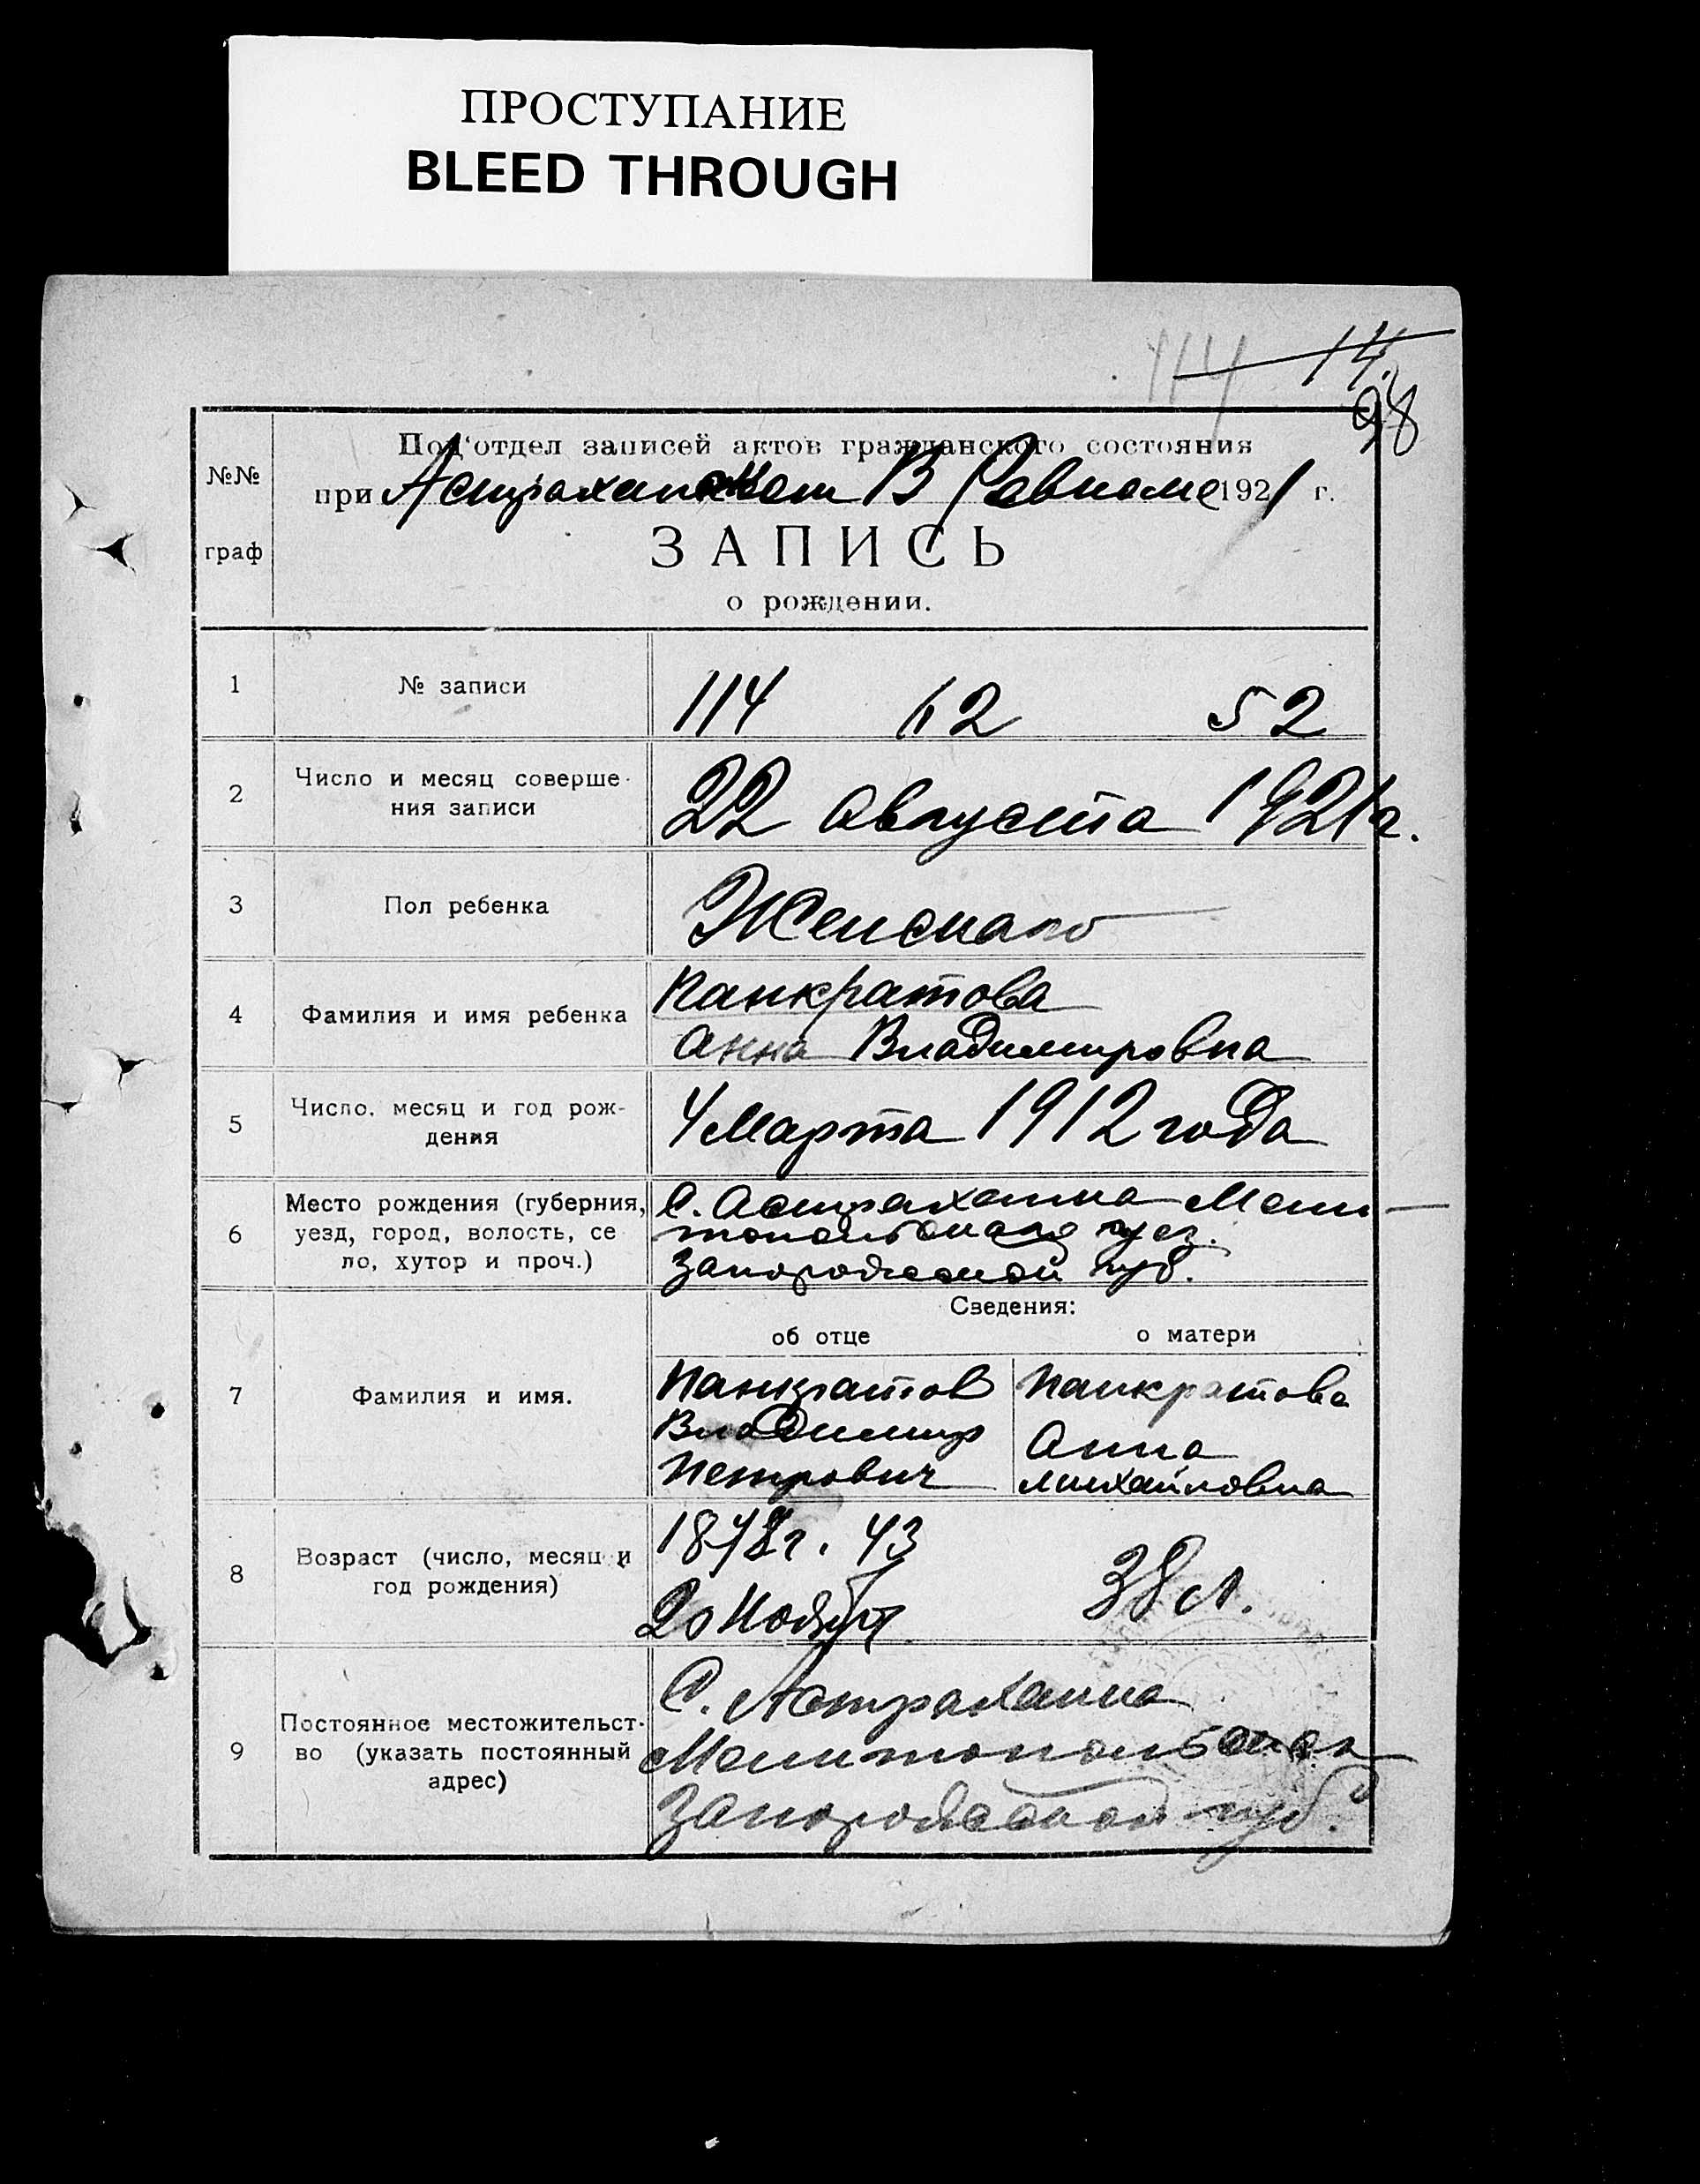 ПРОСТУПАНИЕ
BLEED THROUGH
114 14.
98
№№ граф
Под'отдел записей актов гражданского состояния
при Астраханском В Ревкоме 1921 г.
ЗАПИСЬ
о рождении.
1 № записи 114 62 52
2 Число и месяц соверше-
ния записи 22 августа 1921 г.
3 Пол ребенка Женскаго
4 Фамилия и имя ребенка Панкратова
Анна Владимировна
5 Число, месяц и год рож-
дения 4 Марта 1912 года
6 Место рождения (губерния, С. Астраханка Мели-
уезд, город, волость, се топольскаго уез.
ло, хутор и проч.) Запорожской губ.
Сведения:
об отце о матери
7 Фамилия и имя. Панкратов Панкратова
Владимир Анна
Петрович Михайловна
8 Возраст (число, месяц и 1878 г. 43
год рождения) 20 38 л.
9 С. Астраханка
Постоянное местожительст-
во (указать постоянный Мелитопольскаго
адрес) Запорожской губ.